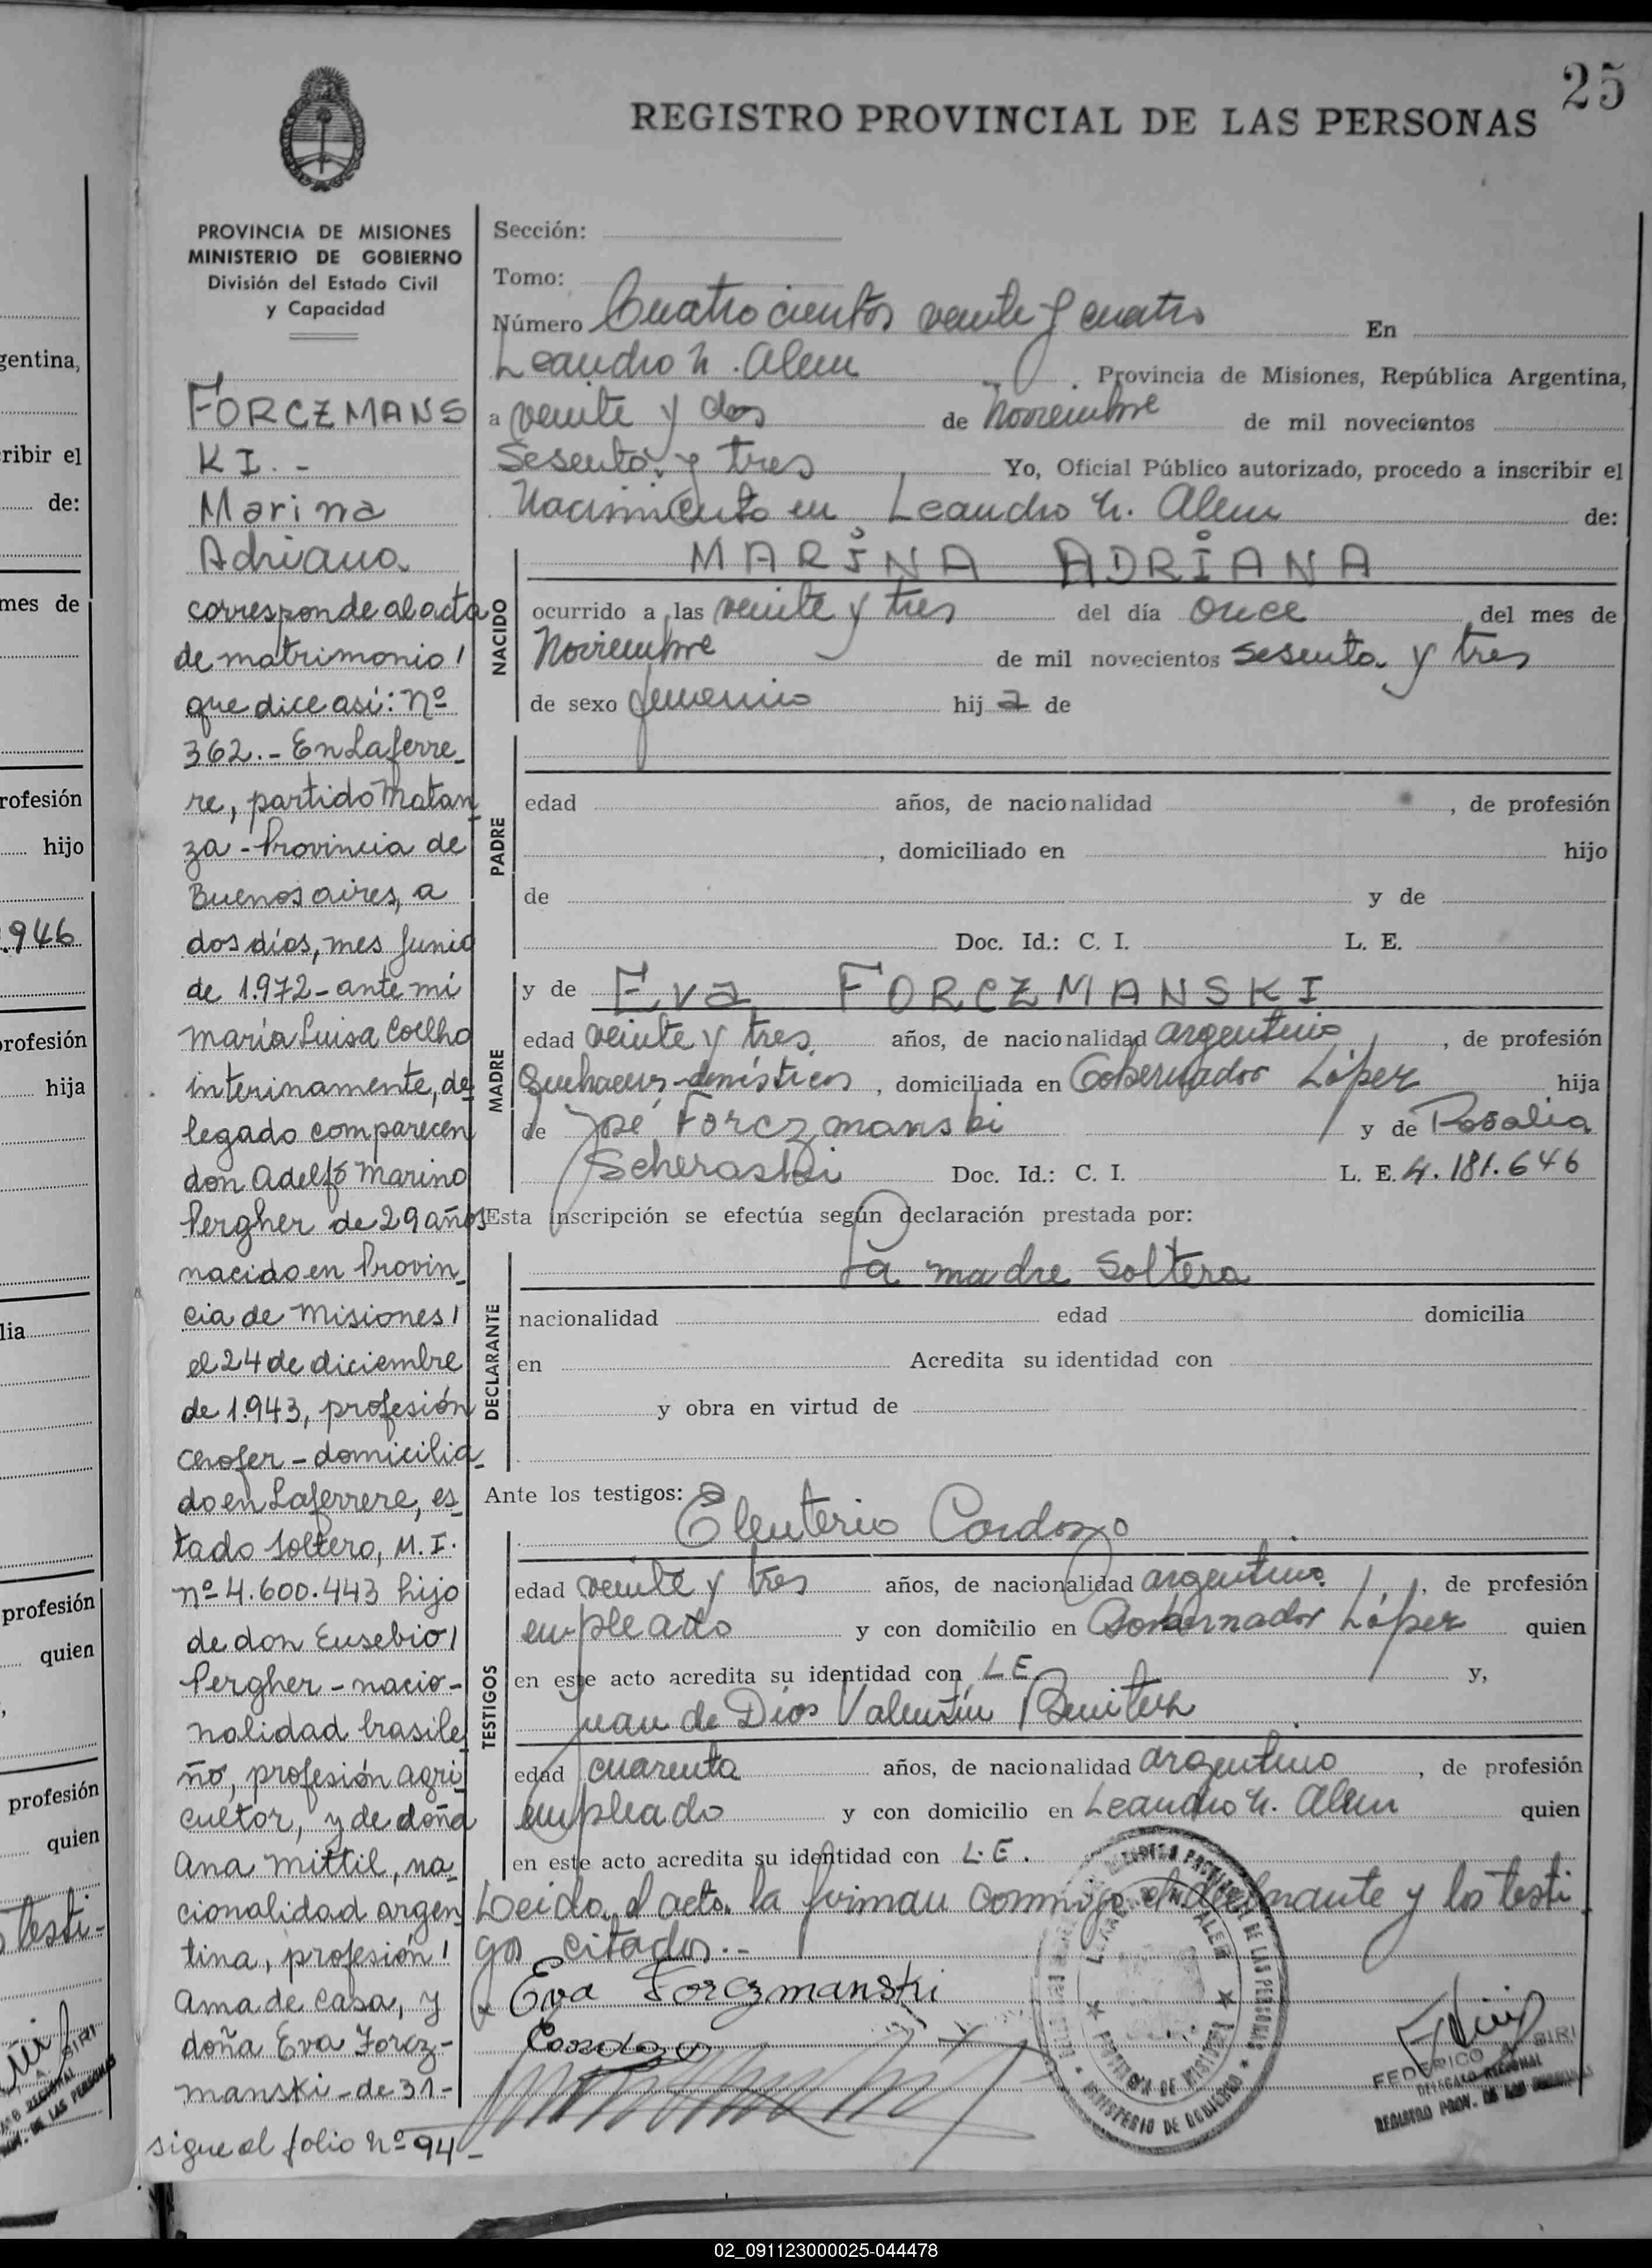 25
REGISTRO PROVINCIAL DE LAS PERSONAS
PROVINCIA DE MISIONES
MINISTERIO DE GOBIERNO
División del Estado Civil
y Capacidad
FORCZMANS
KI.-
Marina
Adriana
corresponde al acta
de matrimonio/
que dice asi: nº
362.- En Laferre_
re, partido Matan_
za - Provincia de
Buenos aires, a
dos días, mes Junio
de 1.972 - ante mi
maría Luisa Coelho
interinamente, de_
legado comparecen
don Adelfo Marino
Pergher de 29 años
nacido en Provin_
cia de Misiones/
el 24 de diciembre
de 1.943, profesión
chofer - domicilia_
do en Laferrere, es_
tado soltero, M. I.
nº 4.600.443 hijo
de don Eusebio/
Pergher - nacio-
nalidad brasile_
ño, profesión agri_
cultor, y de doña
Ana Mittil, na_
cionalidad argen_
tina, profesión/
Ama de casa, y
doña Eva Forcz-
manski - de 31 -
sigue al folio nº 94 -
Sección:
Tomo:
Número Cuatrocientos veinte y cuatro En
Leandro N. Alem . Provincia de Misiones, República Argentina,
a veinte y dos de Noviembre de mil novecientos
Sesenta y tres Yo, Oficial Público autorizado, procedo a inscribir el
Nacimiento en Leandro N. Alem de:
NACIDO
MARINA ADRIANA
ocurrido a las veinte y tres del día Once del mes de
Noviembre de mil novecientos sesenta y tres
de sexo femenino hij a de
PADRE
edad años, de nacionalidad , de profesión
, domiciliado en hijo
de y de
Doc. Id.: C. I. L. E.
MADRE
y de Eva FORCZMANSKI
edad veinte y tres años, de nacionalidad argentino , de profesión
Quehaceres domésticos , domiciliada en Gobernador López hija
de José Forczmanski y de Rosalia
Scheraski Doc. Id.: C. I. L. E. 4.181.646
Esta inscripción se efectúa según declaración prestada por:
DECLARANTE
La madre Soltera
nacionalidad edad domicilia
en Acredita su identidad con
y obra en virtud de
Ante los testigos:
TESTIGOS
Eleuterio Cardozo
edad veinte y tres años, de nacionalidad argentino , de profesión
empleado y con domicilio en Gobernador López quien
en este acto acredita su identidad con L E. y,
Juan de Dios Valentín Benitez
edad cuarenta años, de nacionalidad argentino , de profesión
empleado y con domicilio en Leandro N. Alem quien
en este acto acredita su identidad con L. E.
Leida el acta la firman conmigo el declarante y los testi
gos citados.-
Eva Forczmanski
Cardozo
LEANDRO N. ALEM
PROVINCIA DE MISIONES
MINISTERIO DE GOBIERNO
FEDERICO A. SIRI
DELEGADO REGIONAL
REGISTRO PROV. DE LAS PERSONAS
gentina,
ribir el
de:
mes de
rofesión
hijo
.946
rofesión
hija
lia
profesión
quien
profesión
quien
testi-
02_091123000025-044478